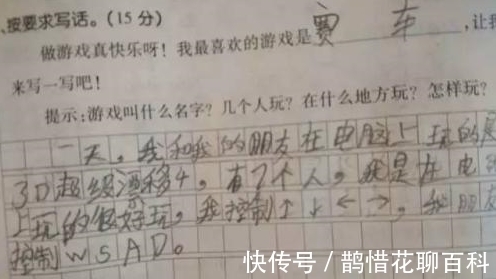 、按要求写话。(15分)
做游戏真快乐呀！我最喜欢的游戏是赛 车，让我
来写一写吧！
提示：游戏叫什么名字？几个人玩？在什么地方玩？怎样玩？
一天，我和我的朋友在电脑上玩的是
3D超级漂移4，有2个人，我是在电
上玩的很好玩，我控制↑↓←→，我朋友
控制WSAD。
快传号/鹊惜花聊百科